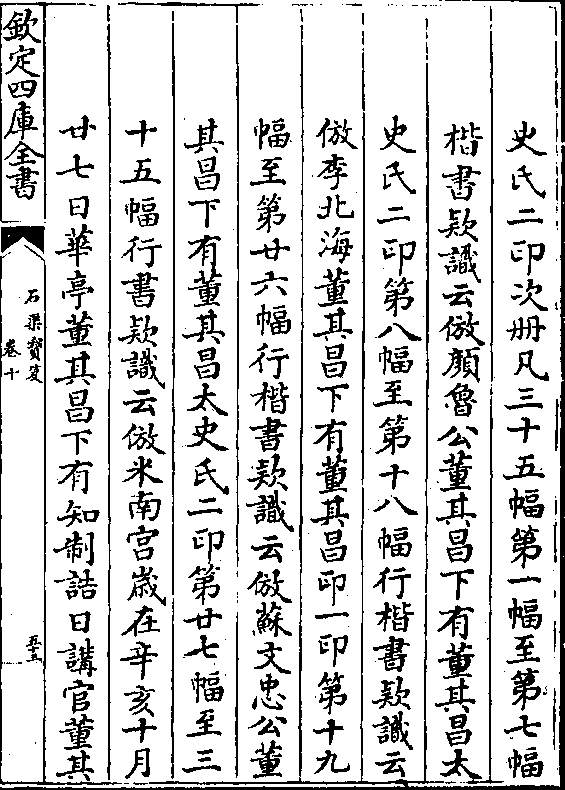 史氏二印次册凡三十五幅第一幅至第七幅
楷書欵識云倣顔魯公董其昌下有董其昌太
史氏二印第八幅至第十八幅行楷書欵識云
倣李北海董其昌下有董其昌印一印第十九
幅至第廿六幅行楷書欵識云倣蘇文忠公董
其昌下有董其昌太史氏二印第廿七幅至三
十五幅行書欵識云倣米南宫歳在辛亥十月
廿七日華亭董其昌下有知制誥日講官董其
欽定四庫全書
石渠寳笈
卷十
五十三